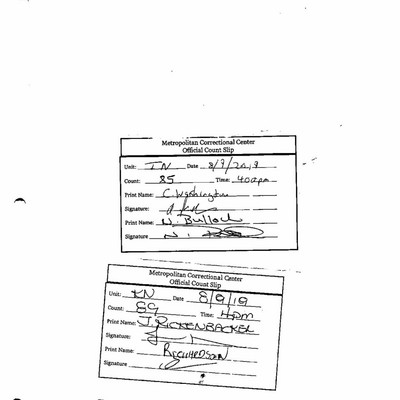 Metropolitan Correctional Center
Official Count Slip
Unit: IN Date 8/9/2019
Count: 85 Time: 400pm
Print Name: C. Washington
Signature:
Print Name: N. Bulloch
Signature N.
Metropolitan Correctional Center
Official Count Slip
Unit: KN Date 8/9/19
Count: 89 Time: 4pm
Print Name: J. RICKENBACKEL
Signature:
Print Name: RICHARDSON
Signature